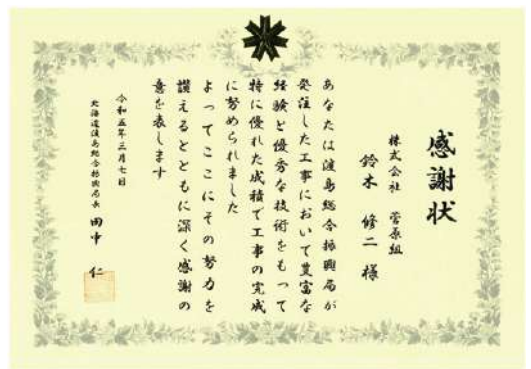 感謝状
株式会社 菅原組
鈴木 修二 様
あなたは渡島総合振興局が
発注した工事において豊富な
経験と優秀な技術をもって
特に優れた成績で工事の完成
に努められました
よってここにその努力を
讃えるとともに深く感謝の
意を表します
令和五年三月七日
北海道渡島総合振興局長 田中 仁